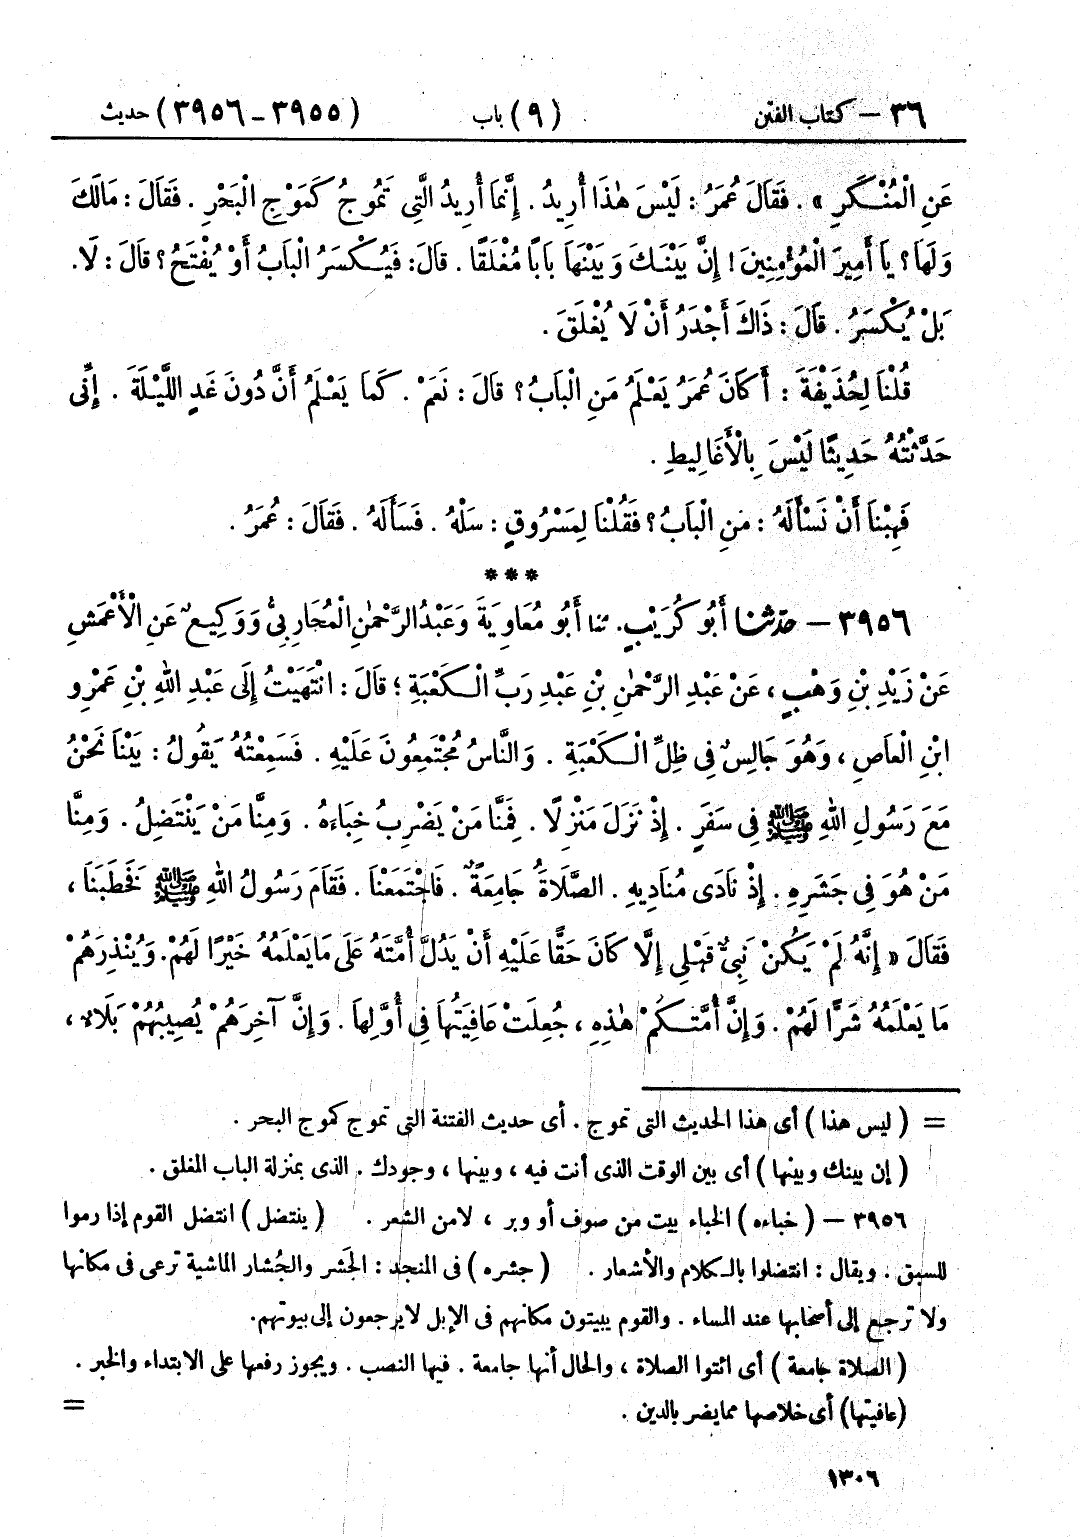 ٣٦ – كتاب الفتن (٩) باب (٣٩٥٥–٣٩٥٦) حديث
عَنِ الْمُنْكَرِ » . فَقَالَ عُمَرُ : لَيْسَ هٰذَا أُرِيدُ . إِنَّمَا أُرِيدُ الَّتِى تَمُوجُ كَمَوْجِ الْبَحْرِ . فَقَالَ : مَالَكَ
وَلَهَا ؟ يَا أَمِيرَ الْمُؤْمِنِينَ ! إِنَّ بَيْنَكَ وَبَيْنَهَا بَابًا مُغْلَقًا . قَالَ : فَيُكْسَرُ الْبَابُ أَوْ يُفْتَحُ ؟ قَالَ : لَا .
بَلْ يُكْسَرُ . قَالَ : ذَاكَ أَجْدَرُ أَنْ لَا يُغْلَقَ .
قُلْنَا لِحُذَيْفَةَ : أَكَانَ عُمَرُ يَعْلَمُ مَنِ الْبَابُ ؟ قَالَ : نَعَمْ . كَمَا يَعْلَمُ أَنَّ دُونَ غَدٍ اللَّيْلَةَ . إِنِّى
حَدَّثْتُهُ حَدِيثًا لَيْسَ بِالْأَغَالِيطِ .
فَهِبْنَا أَنْ نَسْأَلَهُ : مَنِ الْبَابُ ؟ فَقُلْنَا لِمَسْرُوقٍ : سَلْهُ . فَسَأَلَهُ . فَقَالَ : عُمَرُ .
***
٣٩٥٦ – حَدَّثَنَا أَبُو كُرَيْبٍ . ثنا أَبُو مُعَاوِيَةَ وَعَبْدُ الرَّحْمٰنِ الْمُحَارِبِىُّ وَوَكِيعٌ عَنِ الْأَعْمَشِ
عَنْ زَيْدِ بْنِ وَهْبٍ ، عَنْ عَبْدِ الرَّحْمٰنِ بْنِ عَبْدِ رَبِّ الْكَعْبَةِ ؛ قَالَ : انْتَهَيْتُ إِلَى عَبْدِ اللهِ بْنِ عَمْرِو
ابْنِ الْعَاصِ ، وَهُوَ جَالِسٌ فِى ظِلِّ الْكَعْبَةِ . وَالنَّاسُ مُجْتَمِعُونَ عَلَيْهِ . فَسَمِعْتُهُ يَقُولُ : بَيْنَا نَحْنُ
مَعَ رَسُولِ اللهِ ﷺ فِى سَفَرٍ . إِذْ نَزَلَ مَنْزِلًا . فَمِنَّا مَنْ يَضْرِبُ خِبَاءَهُ . وَمِنَّا مَنْ يَنْتَضِلُ . وَمِنَّا
مَنْ هُوَ فِى جَشَرِهِ . إِذْ نَادَى مُنَادِيهِ . الصَّلَاةُ جَامِعَةٌ . فَاجْتَمَعْنَا . فَقَامَ رَسُولُ اللهِ ﷺ فَخَطَبَنَا ،
فَقَالَ « إِنَّهُ لَمْ يَكُنْ نَبِىٌّ قَبْلِى إِلَّا كَانَ حَقًّا عَلَيْهِ أَنْ يَدُلَّ أُمَّتَهُ عَلَى مَا يَعْلَمُهُ خَيْرًا لَهُمْ . وَيُنْذِرَهُمْ
مَا يَعْلَمُهُ شَرًّا لَهُمْ . وَإِنَّ أُمَّتَكُمْ هٰذِهِ ، جُعِلَتْ عَافِيَتُهَا فِى أَوَّلِهَا . وَإِنَّ آخِرَهُمْ يُصِيبُهُمْ بَلَاءٌ ،
= ( ليس هذا ) أى هذا الحديث التى تموج . أى حديث الفتنة التى تموج كموج البحر .
( إن بينك وبينها ) أى بين الوقت الذى أنت فيه ، وبينها ، وجودك . الذى بمنزلة الباب المغلق .
٣٩٥٦ – ( خباءه ) الخباء بيت من صوف أو وبر ، لا من الشعر . ( ينتضل ) انتضل القوم إذا رموا
للسبق . ويقال : انتضلوا بالكلام والأشعار . ( جشره ) فى المنجد : الجَشر والجُشار الماشية ترعى فى مكانها
ولا ترجع إلى أصحابها عند المساء . والقوم يبيتون مكانهم فى الإبل لا يرجعون إلى بيوتهم.
( الصلاة جامعة ) أى ائتوا الصلاة ، والحال أنها جامعة . فيها النصب . ويجوز رفعها على الابتداء والخبر .
(عافيتها) أى خلاصها مما يضر بالدين . =
١٣٠٦